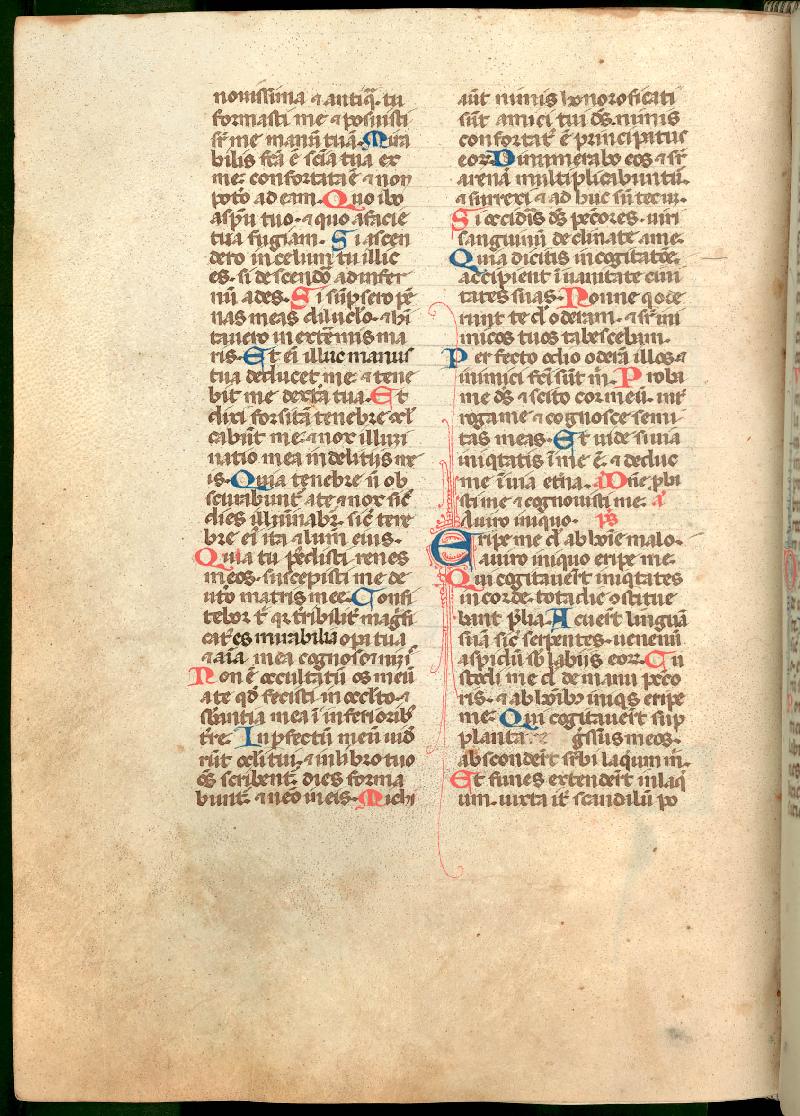 nouissima ⁊ antiq̄. tu
formasti me ⁊ posuisti
sr̄ me manū tuā. Mira
bilis fc̄a ē scīa tua ex
me: confortata ē ⁊ non
pot̄o ad eam. Quo ibo
asp̄u tuo. ⁊ quo a facie
tua fugiam. Si ascen
dero in celum tu illic
es. si descendō ad infer
nū ades. Si sūpsero pē
nas meas diluc̄lo. ⁊ hi
tauero in extēmis ma
ris. Et ei illuc manus
tua deducet me ⁊ tene
bit me dext̄a tua. Et
dixi forsitā tenebre c̄cl
cabūt me: ⁊ nox illumi
natio mea in delitijs me
is. Quia tenebre n̄ ob
scurabunt̄ a te ⁊ nox sic̄
dies illūinabr̄. sic̄ tene
bre ei ita ⁊ lum eius.
Quia tu possedisti renes
meos. suscepisti me de
ut̄o matris mee. Confi
tebor t̄ qr̄ t̄ribilit̄ magn̄fi
cat̄ es mirabilia opa tua
⁊ aīa mea cognoscit nimī
Non ē occultatū os meū
a te qd̄ fecisti in occl̄to. ⁊
sb̄stantia mea ī inferiorib̄
tr̄re. Inp̄fectū meū uid̄
rūt ocl̄i tui. ⁊ in libro tuo
oēs scribent̄. dies forma
bunt̄. ⁊ nēo in eis. Michi
aūt nimis honorificati
sūt amici tui ds̄. nimis
confortat̄ ē principatus
eoꝝ Dinumerabo eos ⁊ sr̄
arenā multiplicabuntū.
⁊ surrexi ⁊ ad huc sū tecū.
Si occidis ds̄ pec̄ores. uiri
sanguinū declinate a me.
Quia dicitis in cogitatōe.
accipient ī uanitate ciui
tates suas. Nonne q ode
runt te d̄ oderam. ⁊ sr̄ ini
micos tuos tabescebam.
Perfecto odio oderā illos. ⁊
inimici fc̄i sūt m̄. Proba
me ds̄ ⁊ scito cor meū. inr̄
roga me ⁊ cognosce semi
tas meas. Et uide si uia
iniqtatis ī me ē. ⁊ deduc
me ī uia et̄na. Dn̄e p̄bi
sti me ⁊ cognouisti me. a
A uiro iniquo. ps̄
Eripe me d̄ ab hoīe malo.
a uiro iniquo eripe me.
Qui cogitauer̄t iniqtates
in corde. tota die ostitue
bant p̄lia. Acuer̄t linguā
suā sic̄ serpentes. uenenū
aspidū sb̄ labiis eoꝝ. Cu
stodi me d̄ de manu pecc̄o
ris. ⁊ ab hoīb; iniqs eripe
me. Qui cogitauer̄t sup
planta. gs̄sus meos.
absconder̄t sr̄bi laqum m̄.
Et funes extender̄t in laq̄
um. iuxta it̄ scandalū po